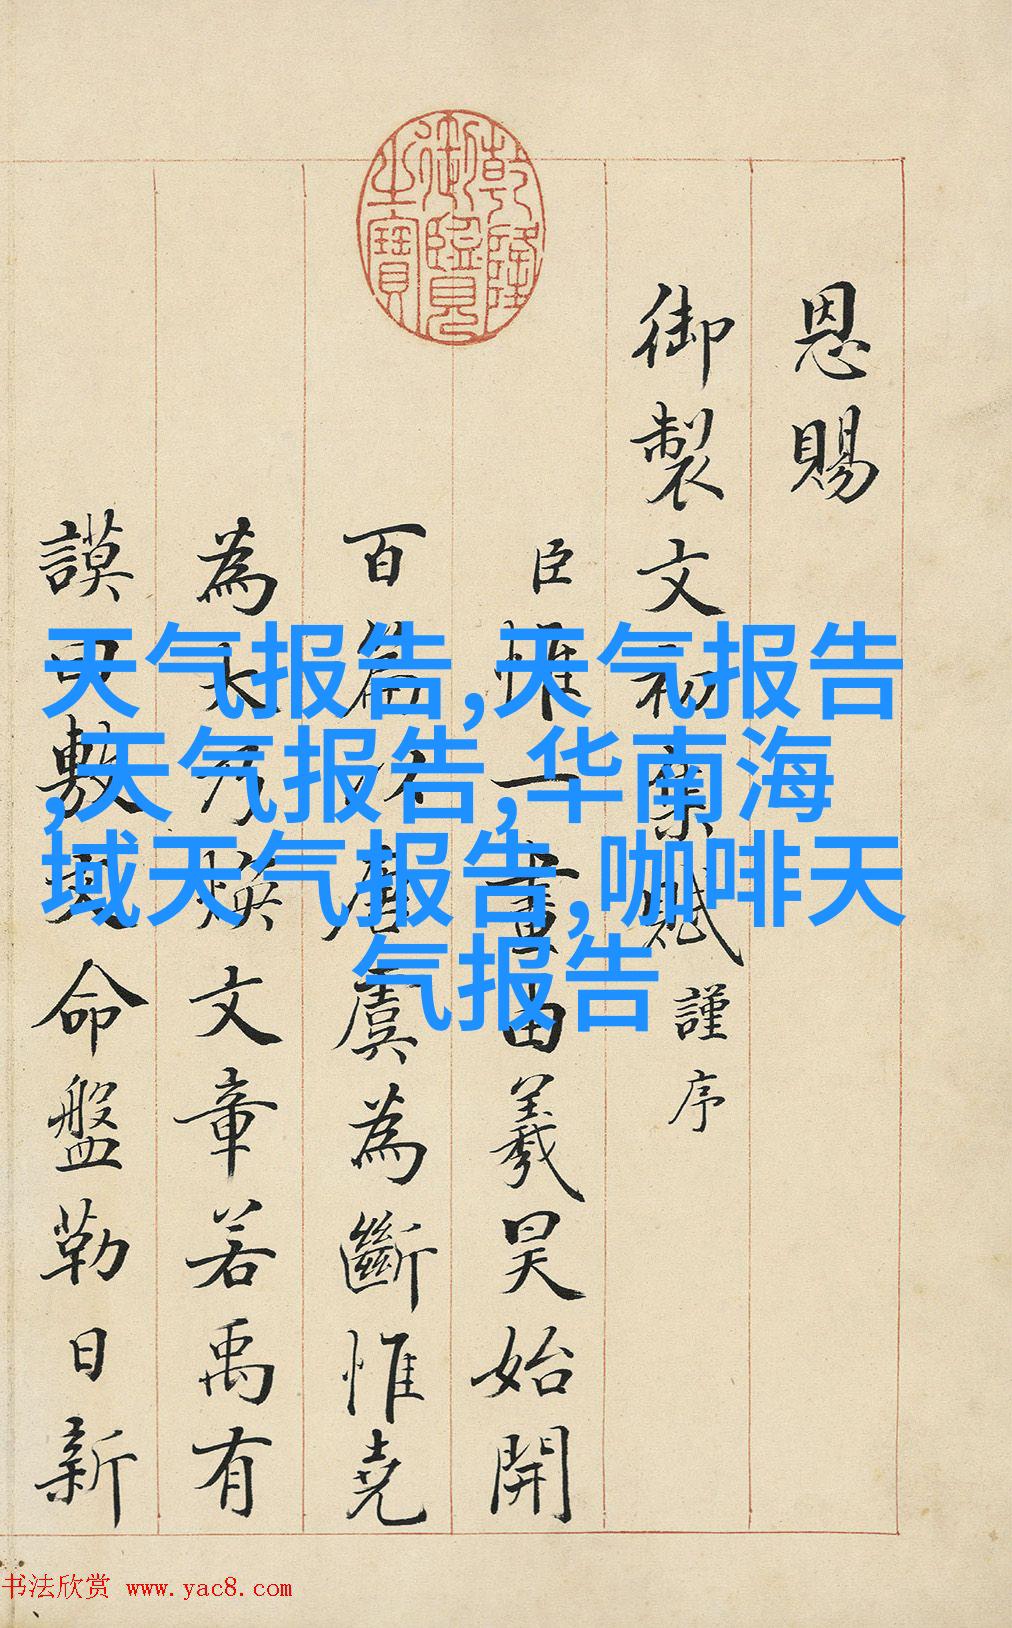 乾隆御覽之寶
恩賜
御製文初集賦謹序
臣惟一畫由羲昊始開
百篇以唐虞為斷惟堯
為大乃煥文章若禹有
謨敷命盤勒日新
天气报告,天气报告
,天气报告,华南海
域天气报告,咖啡天
气报告
书法欣赏 www.yac8.com